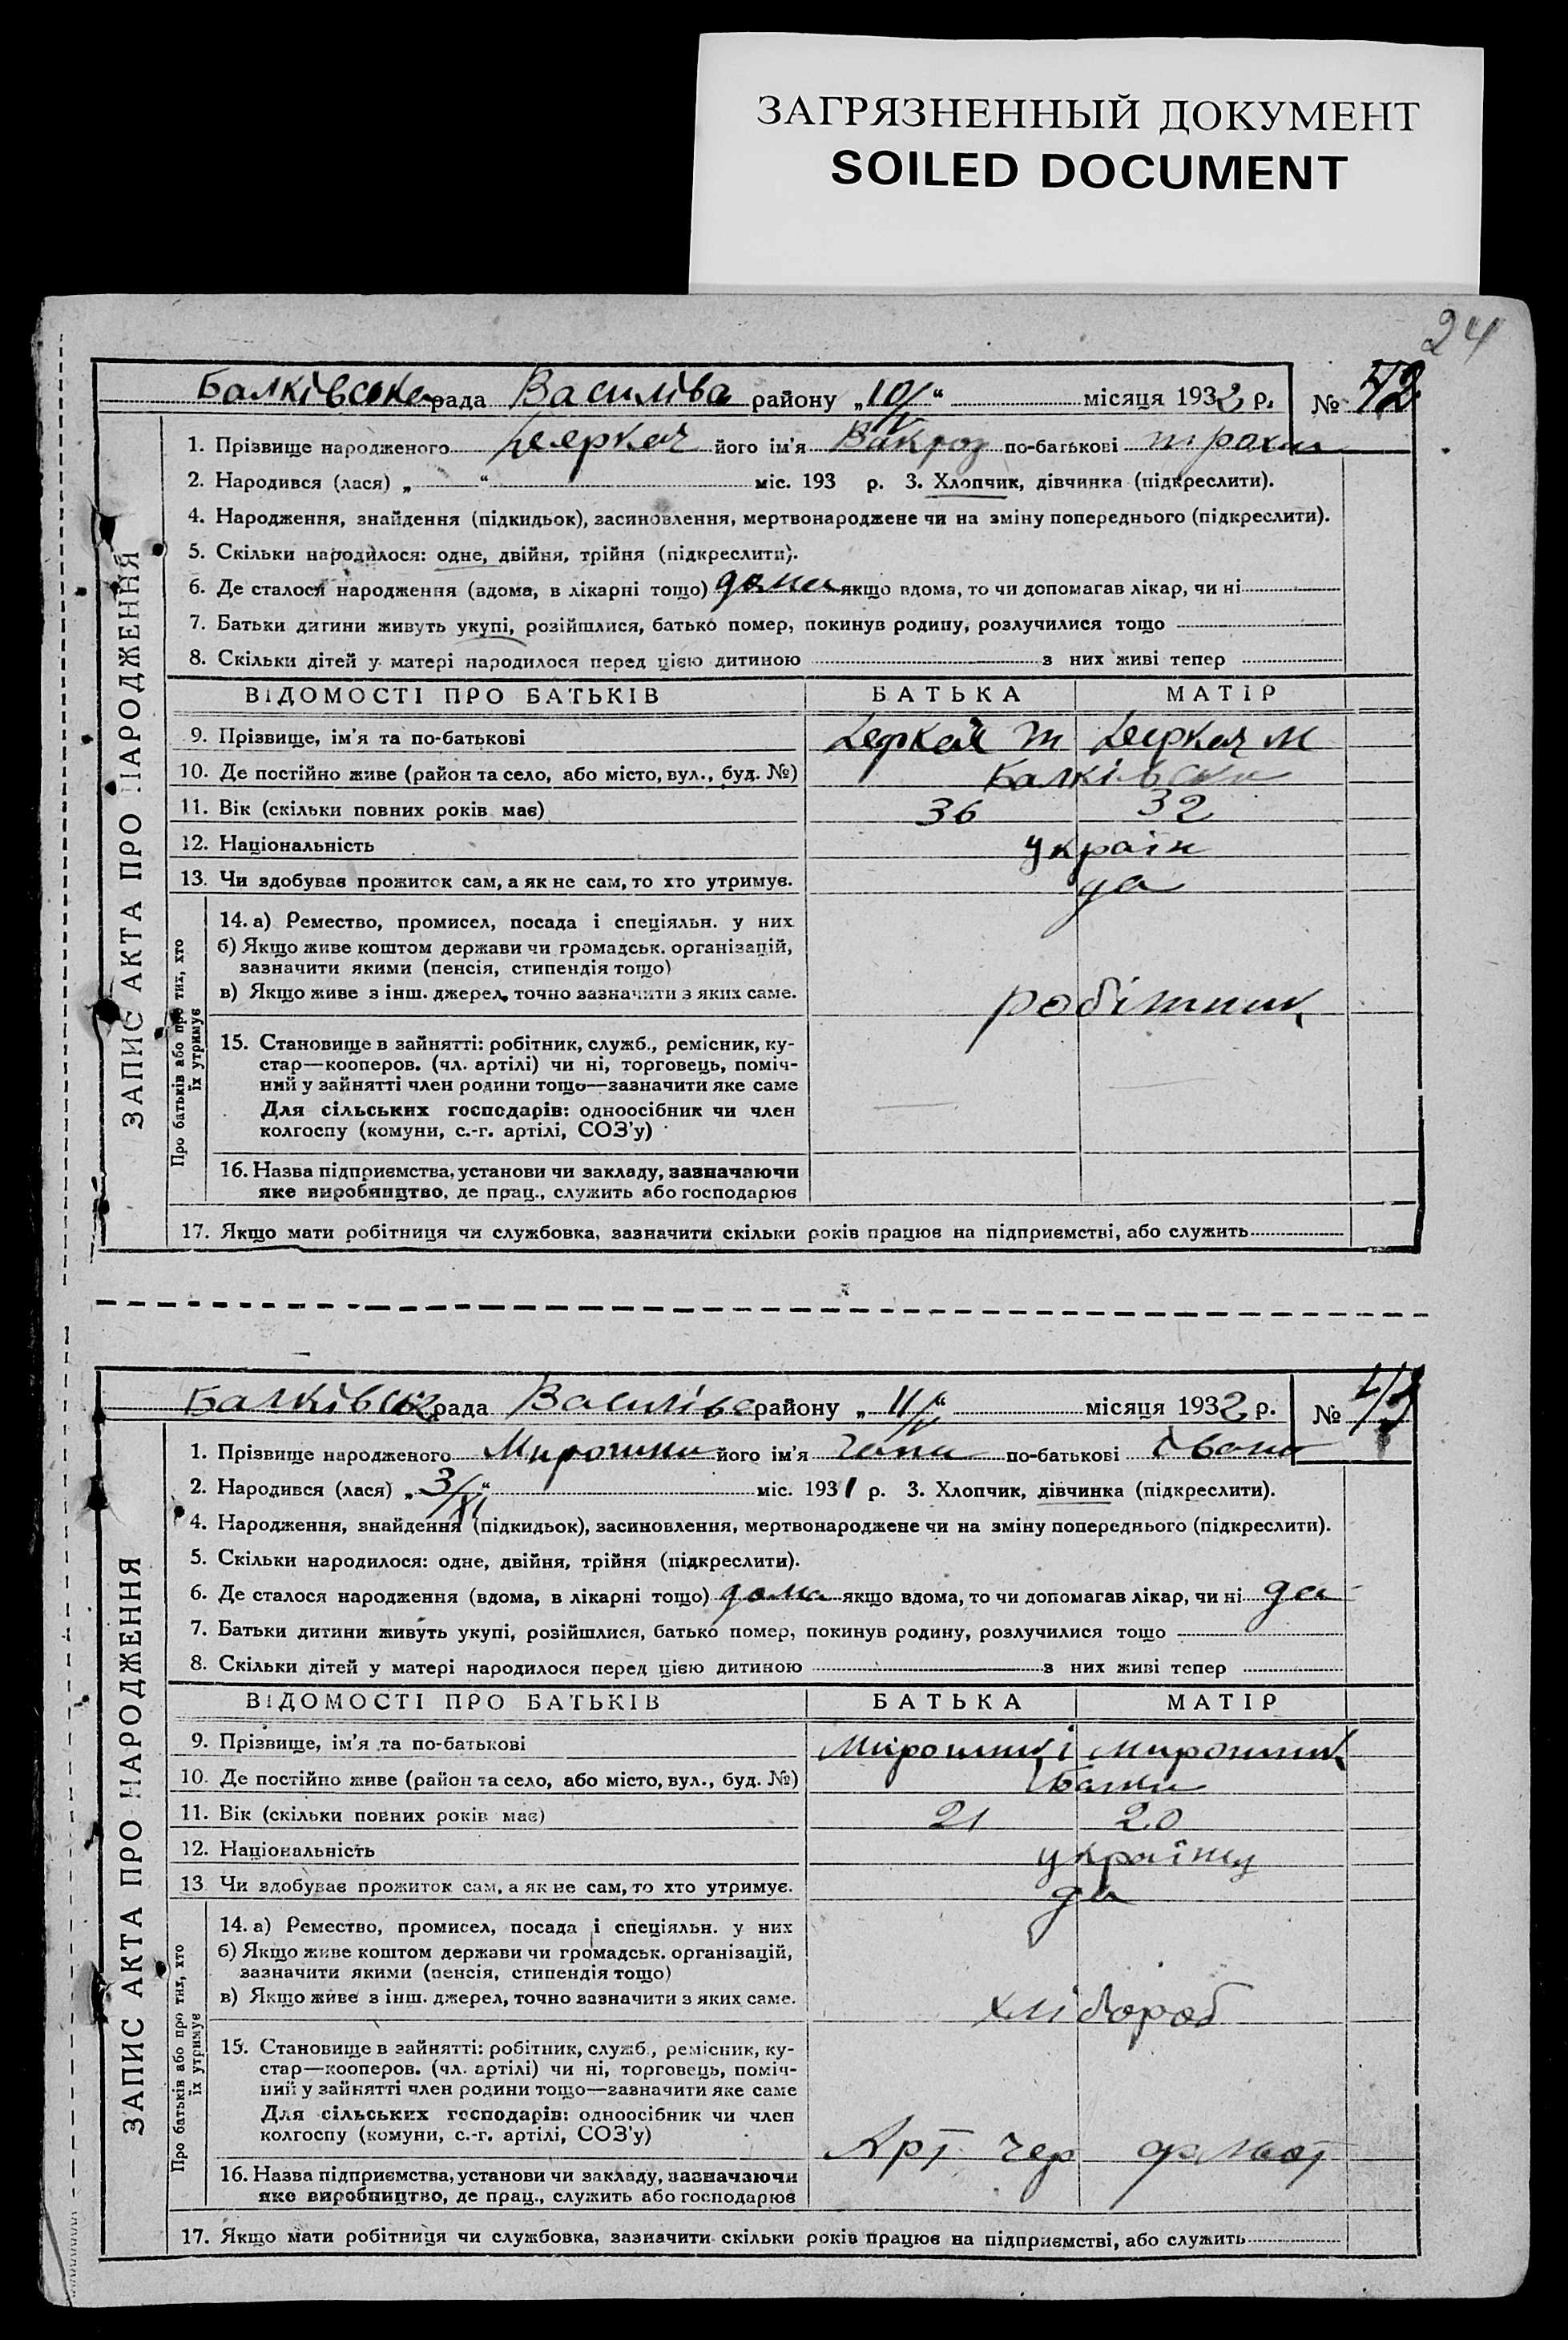 ЗАГРЯЗНЕННЫЙ ДОКУМЕНТ
SOILED DOCUMENT
24
ЗАПИС АКТА ПРО НАРОДЖЕННЯ
Балківська рада Василівс району „10/V“ місяця 1932 р. № 42
1. Прізвище народженого Деркач його ім'я по-батькові
2. Народився (лася) „ “ міс. 193 р. 3. Хлопчик, дівчинка (підкреслити).
4. Народження, знайдення (підкидьок), засиновлення, мертвонароджене чи на зміну попереднього (підкреслити).
5. Скільки народилося: одне, двійня, трійня (підкреслити).
6. Де сталося народження (вдома, в лікарні тощо) дома якщо вдома, то чи допомагав лікар, чи ні
7. Батьки дитини живуть укупі, розійшлися, батько помер, покинув родину, розлучилися тощо
8. Скільки дітей у матері народилося перед цією дитиною з них живі тепер
ВІДОМОСТІ ПРО БАТЬКІВ БАТЬКА МАТІР
9. Прізвище, ім'я та по-батькові Деркач Т Деркач М
10. Де постійно живе (район та село, або місто, вул., буд. №) Балківська
11. Вік (скільки повних років має) 36 32
12. Національність україн
13. Чи здобуває прожиток сам, а як не сам, то хто утримує. да
Про батьків або про тих, хто їх утримує
14. а) Ремество, промисел, посада і спеціяльн. у них
б) Якщо живе коштом держави чи громадськ. організацій,
зазначити якими (пенсія, стипендія тощо)
в) Якщо живе з інш. джерел, точно зазначити з яких саме. робітник
15. Становище в зайнятті: робітник, служб., ремісник, ку-
стар—кооперов. (чл. артілі) чи ні, торговець, поміч-
ний у зайнятті член родини тощо—зазначити яке саме
Для сільських господарів: одноосібник чи член
колгоспу (комуни, с.-г. артілі, СОЗ'у)
16. Назва підприємства, установи чи закладу, зазначаючи
яке виробництво, де прац., служить або господарює
17. Якщо мати робітниця чи службовка, зазначити скільки років працює на підприємстві, або служить
ЗАПИС АКТА ПРО НАРОДЖЕННЯ
Балківськ рада Василівс району „11/V“ місяця 1932 р. № 43
1. Прізвище народженого Мирошни його ім'я по-батькові Івана
2. Народився (лася) „3/XI“ міс. 1931 р. 3. Хлопчик, дівчинка (підкреслити).
4. Народження, знайдення (підкидьок), засиновлення, мертвонароджене чи на зміну попереднього (підкреслити).
5. Скільки народилося: одне, двійня, трійня (підкреслити).
6. Де сталося народження (вдома, в лікарні тощо) дома якщо вдома, то чи допомагав лікар, чи ні да
7. Батьки дитини живуть укупі, розійшлися, батько помер, покинув родину, розлучилися тощо
8. Скільки дітей у матері народилося перед цією дитиною з них живі тепер
ВІДОМОСТІ ПРО БАТЬКІВ БАТЬКА МАТІР
9. Прізвище, ім'я та по-батькові Мирошник і Мирошник
10. Де постійно живе (район та село, або місто, вул., буд. №) Балки
11. Вік (скільки повних років має) 21 20
12. Національність українц
13 Чи здобуває прожиток сам, а як не сам, то хто утримує. да
Про батьків або про тих, хто їх утримує
14. а) Ремество, промисел, посада і спеціяльн. у них
б) Якщо живе коштом держави чи громадськ. організацій,
зазначити якими (пенсія, стипендія тощо)
в) Якщо живе з інш. джерел, точно зазначити з яких саме. хлібороб
15. Становище в зайнятті: робітник, служб., ремісник, ку-
стар—кооперов. (чл. артілі) чи ні, торговець, поміч-
ний у зайнятті член родини тощо—зазначити яке саме
Для сільських господарів: одноосібник чи член
колгоспу (комуни, с.-г. артілі, СОЗ'у) Арт Чер флот
16. Назва підприємства, установи чи закладу, зазначаючи
яке виробництво, де прац., служить або господарює
17. Якщо мати робітниця чи службовка, зазначити скільки років працює на підприємстві, або служить